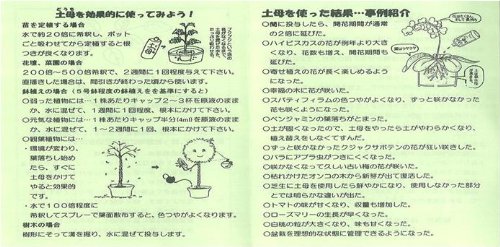 土母を効果的に使ってみよう！
苗を定植する場合
水で約20倍に希釈し、ポット
ごと吸わせてから定植すると根
つきが良くなります。
花壇、菜園の場合
200倍～500倍希釈で、2週間に1回程度与えて下さい。
直播きした場合は、間引きが終わった頃から使います。
鉢植えの場合（5号鉢程度の鉢植えを基準にすると）
○弱った植物には…1株あたりキャップ2～3杯を原液のまま
か、水に混ぜて、1週間に1回程度、根本にかけて下さい。
○元気な植物には…1株あたりキャップ半分(4ml)を原液のまま
か、水に混ぜて、1～2週間に1回、根本にかけて下さい。
○観葉植物には…
・環境が変わり、
葉落ちし始め
たら、すぐに
土母をかけて
やると効果的
です。
・水で100倍程度に
希釈してスプレーで葉面散布すると、色つやがよくなります。
樹木の場合
樹形にそって溝を掘り、水に混ぜて投与します。
土母を使った結果…事例紹介
○蘭に投与したら、開花期間が通常
の2倍に延びた。
○ハイビスカスの花が例年より大き
くなり、花数も増え、開花期間も
延びた。
○寄せ植えの花が長く楽しめるよう
になった。
○幸福の木に花が咲いた。
○スパティフィラムの色つやがよくなり、ずっと咲かなかった
花も咲くようになった。
○ベンジャミンの葉落ちがとまった。
○土が固くなったので、土母をやったら土がやわらかくなり、
植え替えをしなくてすんだ。
○ずっと咲かなかったクジャクサボテンの花が狂い咲きした。
○バラにアブラ虫がつきにくくなった。
○咲かなくなって久しい古い梅の花が咲いた。
○枯れかけたオンコの木から新芽が出て復活した。
○芝生に土母を使用したら鮮やかになり、使用しなかった部分
とでは明らかな違いが出た。
○トマトの味が甘くなり、収量も増加した。
○ローズマリーの生長が早くなった。
○白桃の粒が大きくなり、味も甘くなった。
○盆栽を理想的な状態に管理できるようになった。